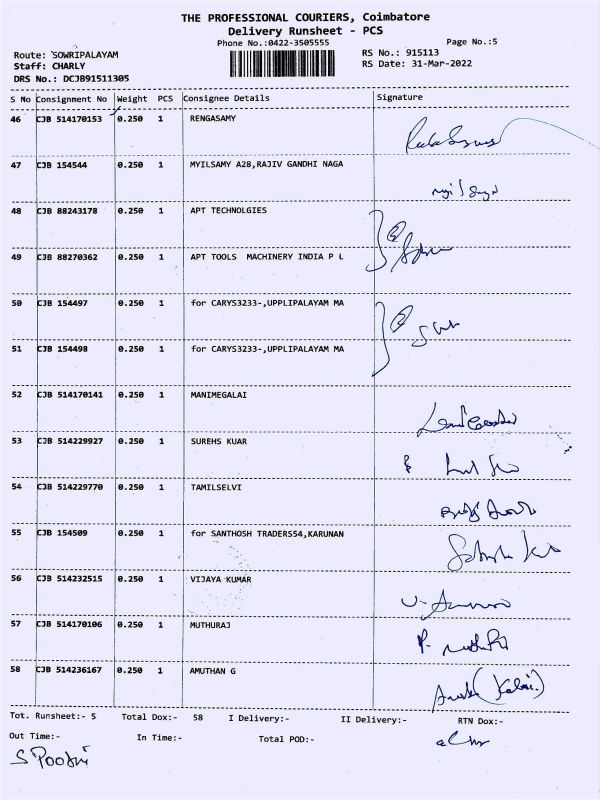 THE PROFESSIONAL COURIERS, Coimbatore
Delivery Runsheet - PCS
Phone No.:0422-3505555 Page No.:5
Route: SOWRIPALAYAM RS No.: 915113
Staff: CHARLY RS Date: 31-Mar-2022
DRS No.: DCJB91511305
S No Consignment No Weight PCS Consignee Details Signature
46 CJB 514170153 0.250 1 RENGASAMY
47 CJB 154544 0.250 1 MYILSAMY A2B,RAJIV GANDHI NAGA
48 CJB 88243178 0.250 1 APT TECHNOLGIES
49 CJB 88270362 0.250 1 APT TOOLS MACHINERY INDIA P L
50 CJB 154497 0.250 1 for CARYS3233-,UPPLIPALAYAM MA
51 CJB 154498 0.250 1 for CARYS3233-,UPPLIPALAYAM MA
52 CJB 514170141 0.250 1 MANIMEGALAI
53 CJB 514229927 0.250 1 SUREHS KUAR
54 CJB 514229770 0.250 1 TAMILSELVI
55 CJB 154509 0.250 1 for SANTHOSH TRADERS54,KARUNAN
56 CJB 514232515 0.250 1 VIJAYA KUMAR
57 CJB 514170106 0.250 1 MUTHURAJ
58 CJB 514236167 0.250 1 AMUTHAN G
Tot. Runsheet:- 5 Total Dox:- 58 I Delivery:- II Delivery:- RTN Dox:-
Out Time:- In Time:- Total POD:-